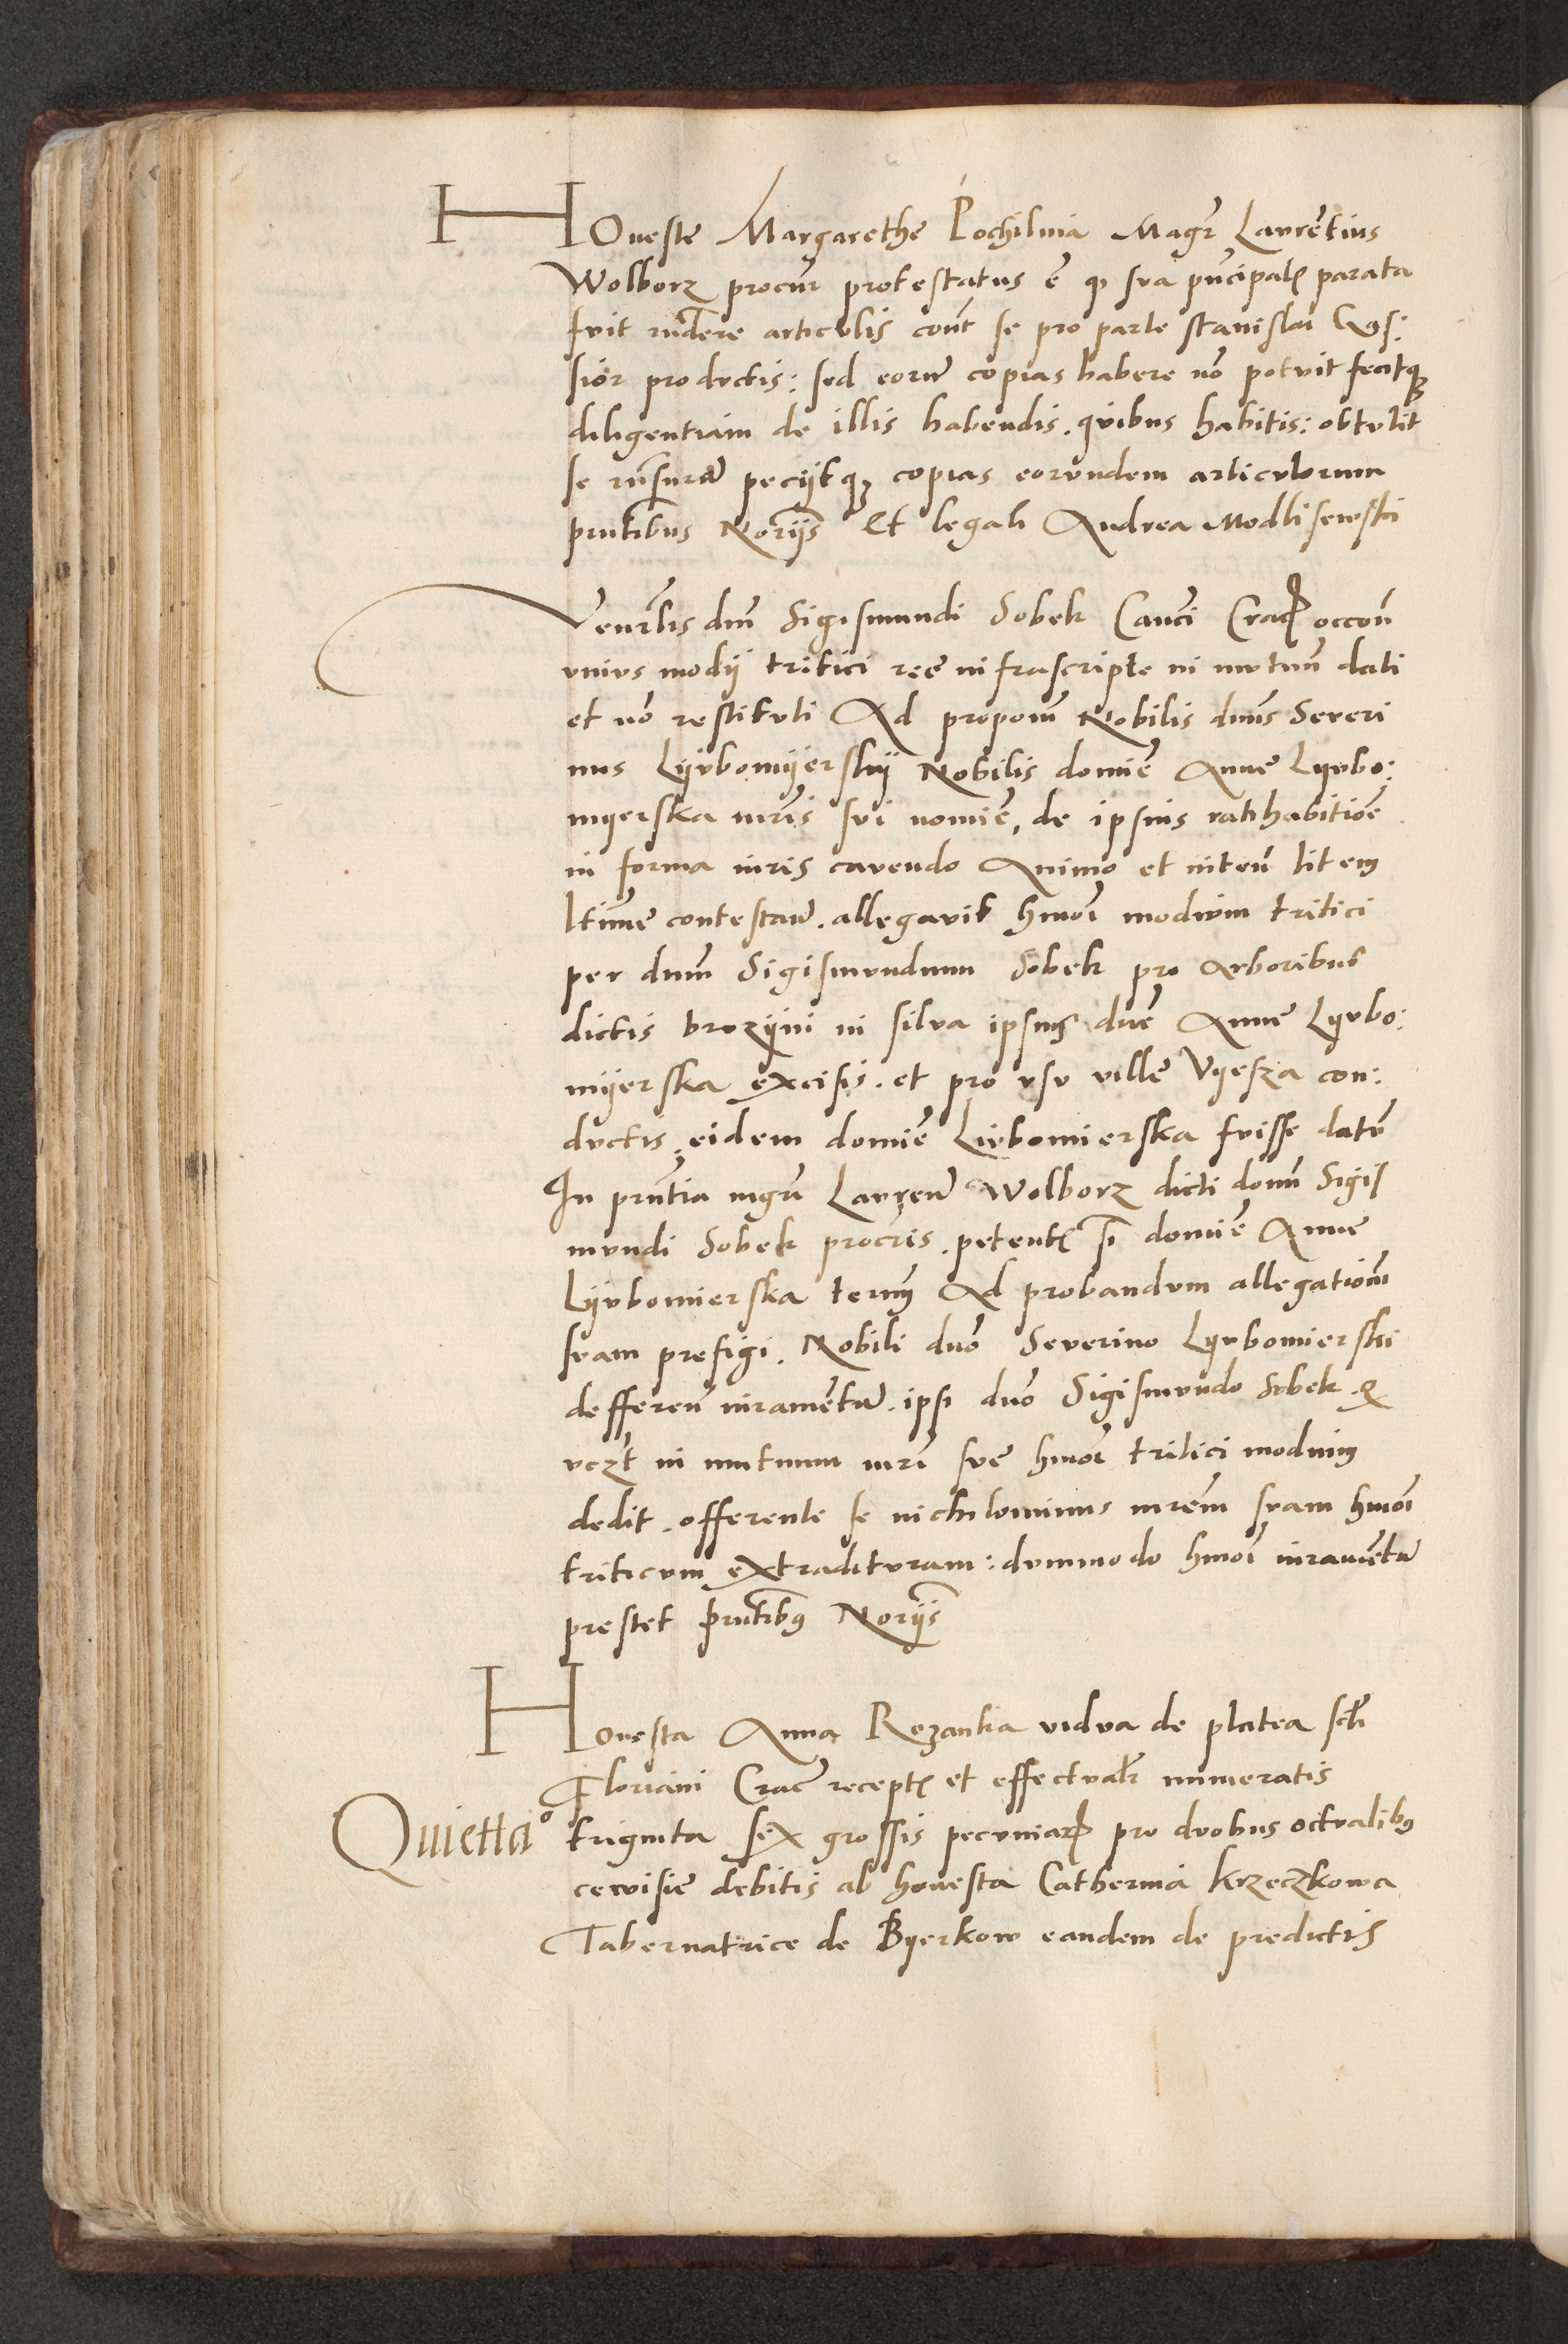 HOneste Margarethe Pochilnia Magr̄ Laurētius
Wolborz procūr protestatus ē ꝙ sua pn̄cipalꝭ parata
fuit rn̄dere articulis cont̄ se pro parte stanislai Gąs:
sior productis: sed eorū copias habere nō potuit fecitqꝫ
diligentiam de illis habendis. quibus habitis: obtulit
se rn̄surā peciitqꝫ copias eorundem articulorum
pn̄tibus Norijs Et legali Andrea Modlisewski
Venēlis dn̄i Sigismundi Sobek Canci Cracꝝ occōn̄
unius modij tritici ree infrascripte in mutuū dati
et nō restituti Ad propon̄ Nobilis dn̄us Seueri
nus Lyvbomyerskij Nobilis domīe Anne Lyvbo:
myerska mr̄is sui nomīe, de ipsius ratihabitiōe
in forma iuris cauendo Animo et inteñ litem
ltīme contestan̄. allegauit hm̄oi modium tritici
per dnm̄ Sigismundum Sobek pro Arboribus
dictis brozyni in silva ipsius dn̄e Anne Lyvbo:
myerska excisis. et pro usu ville Vyesza con:
ductis, eidem domīe Livbomierska fuisse datū
In pn̄tia mgr̄i Laureñ Wolborz dicti domī Sigis
mundi Sobek procr̄is. petentꝭ p̄ domīe Anne
Lyvbomierska termꝫ Ad probandum allegationē
suam prefigi. Nobili dn̄o Severino Lyvbomierski
defferen̄ iuramētū. ipsi dn̄o Sigismundo Sobek. ꝙ
vczt in mutuum mr̄i sue hm̄oi tritici modium
dedit. offerente se nichilominus mr̄em suam hm̄oi
triticum extradituram: dummodo hm̄oi iuramētū
prestet pn̄tibꝰ Norijs
Honesta Anna Rozanka vidua de platea scti
Floriani Crac̄ receptꝭ et effectualr̄ numeratis
Quietta°
triginta sex grossis pecuniarꝝ pro duobus octualibꝰ
ceruisie debitis ab honesta Catherina Krzeczkowa
Tabernatrice de Byerkow eandem de predictis